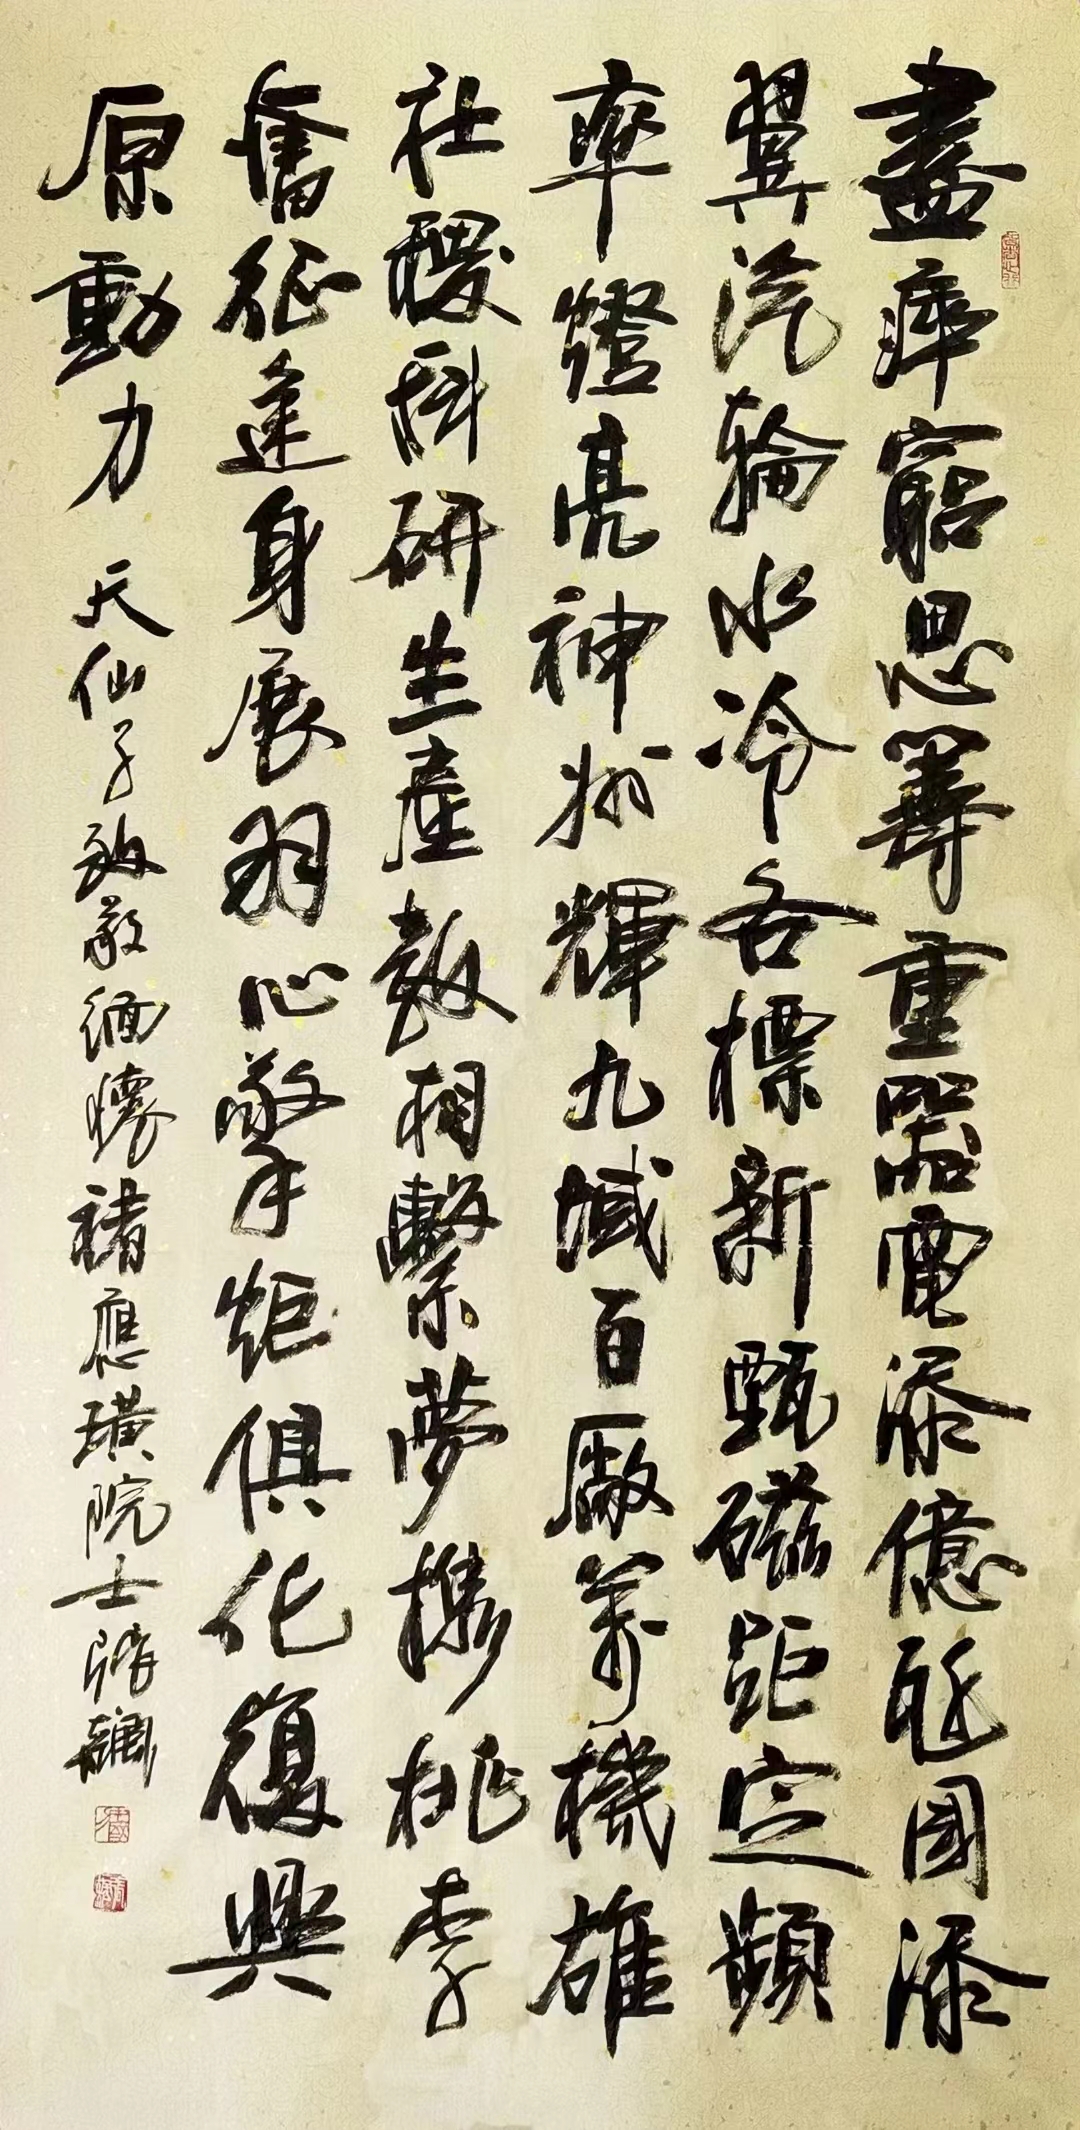 盡瘁窮思籌重器電添億瓩國添
翼汽輪水冷各標新甄磁距定頻
率燈亮神州輝九域百廠萬機雄
社稷科研生產教相繫夢攜桃李
奮征途身展羽心擎炬俱化復興
原動力 天仙子 致敬緬懷褚應璜院士